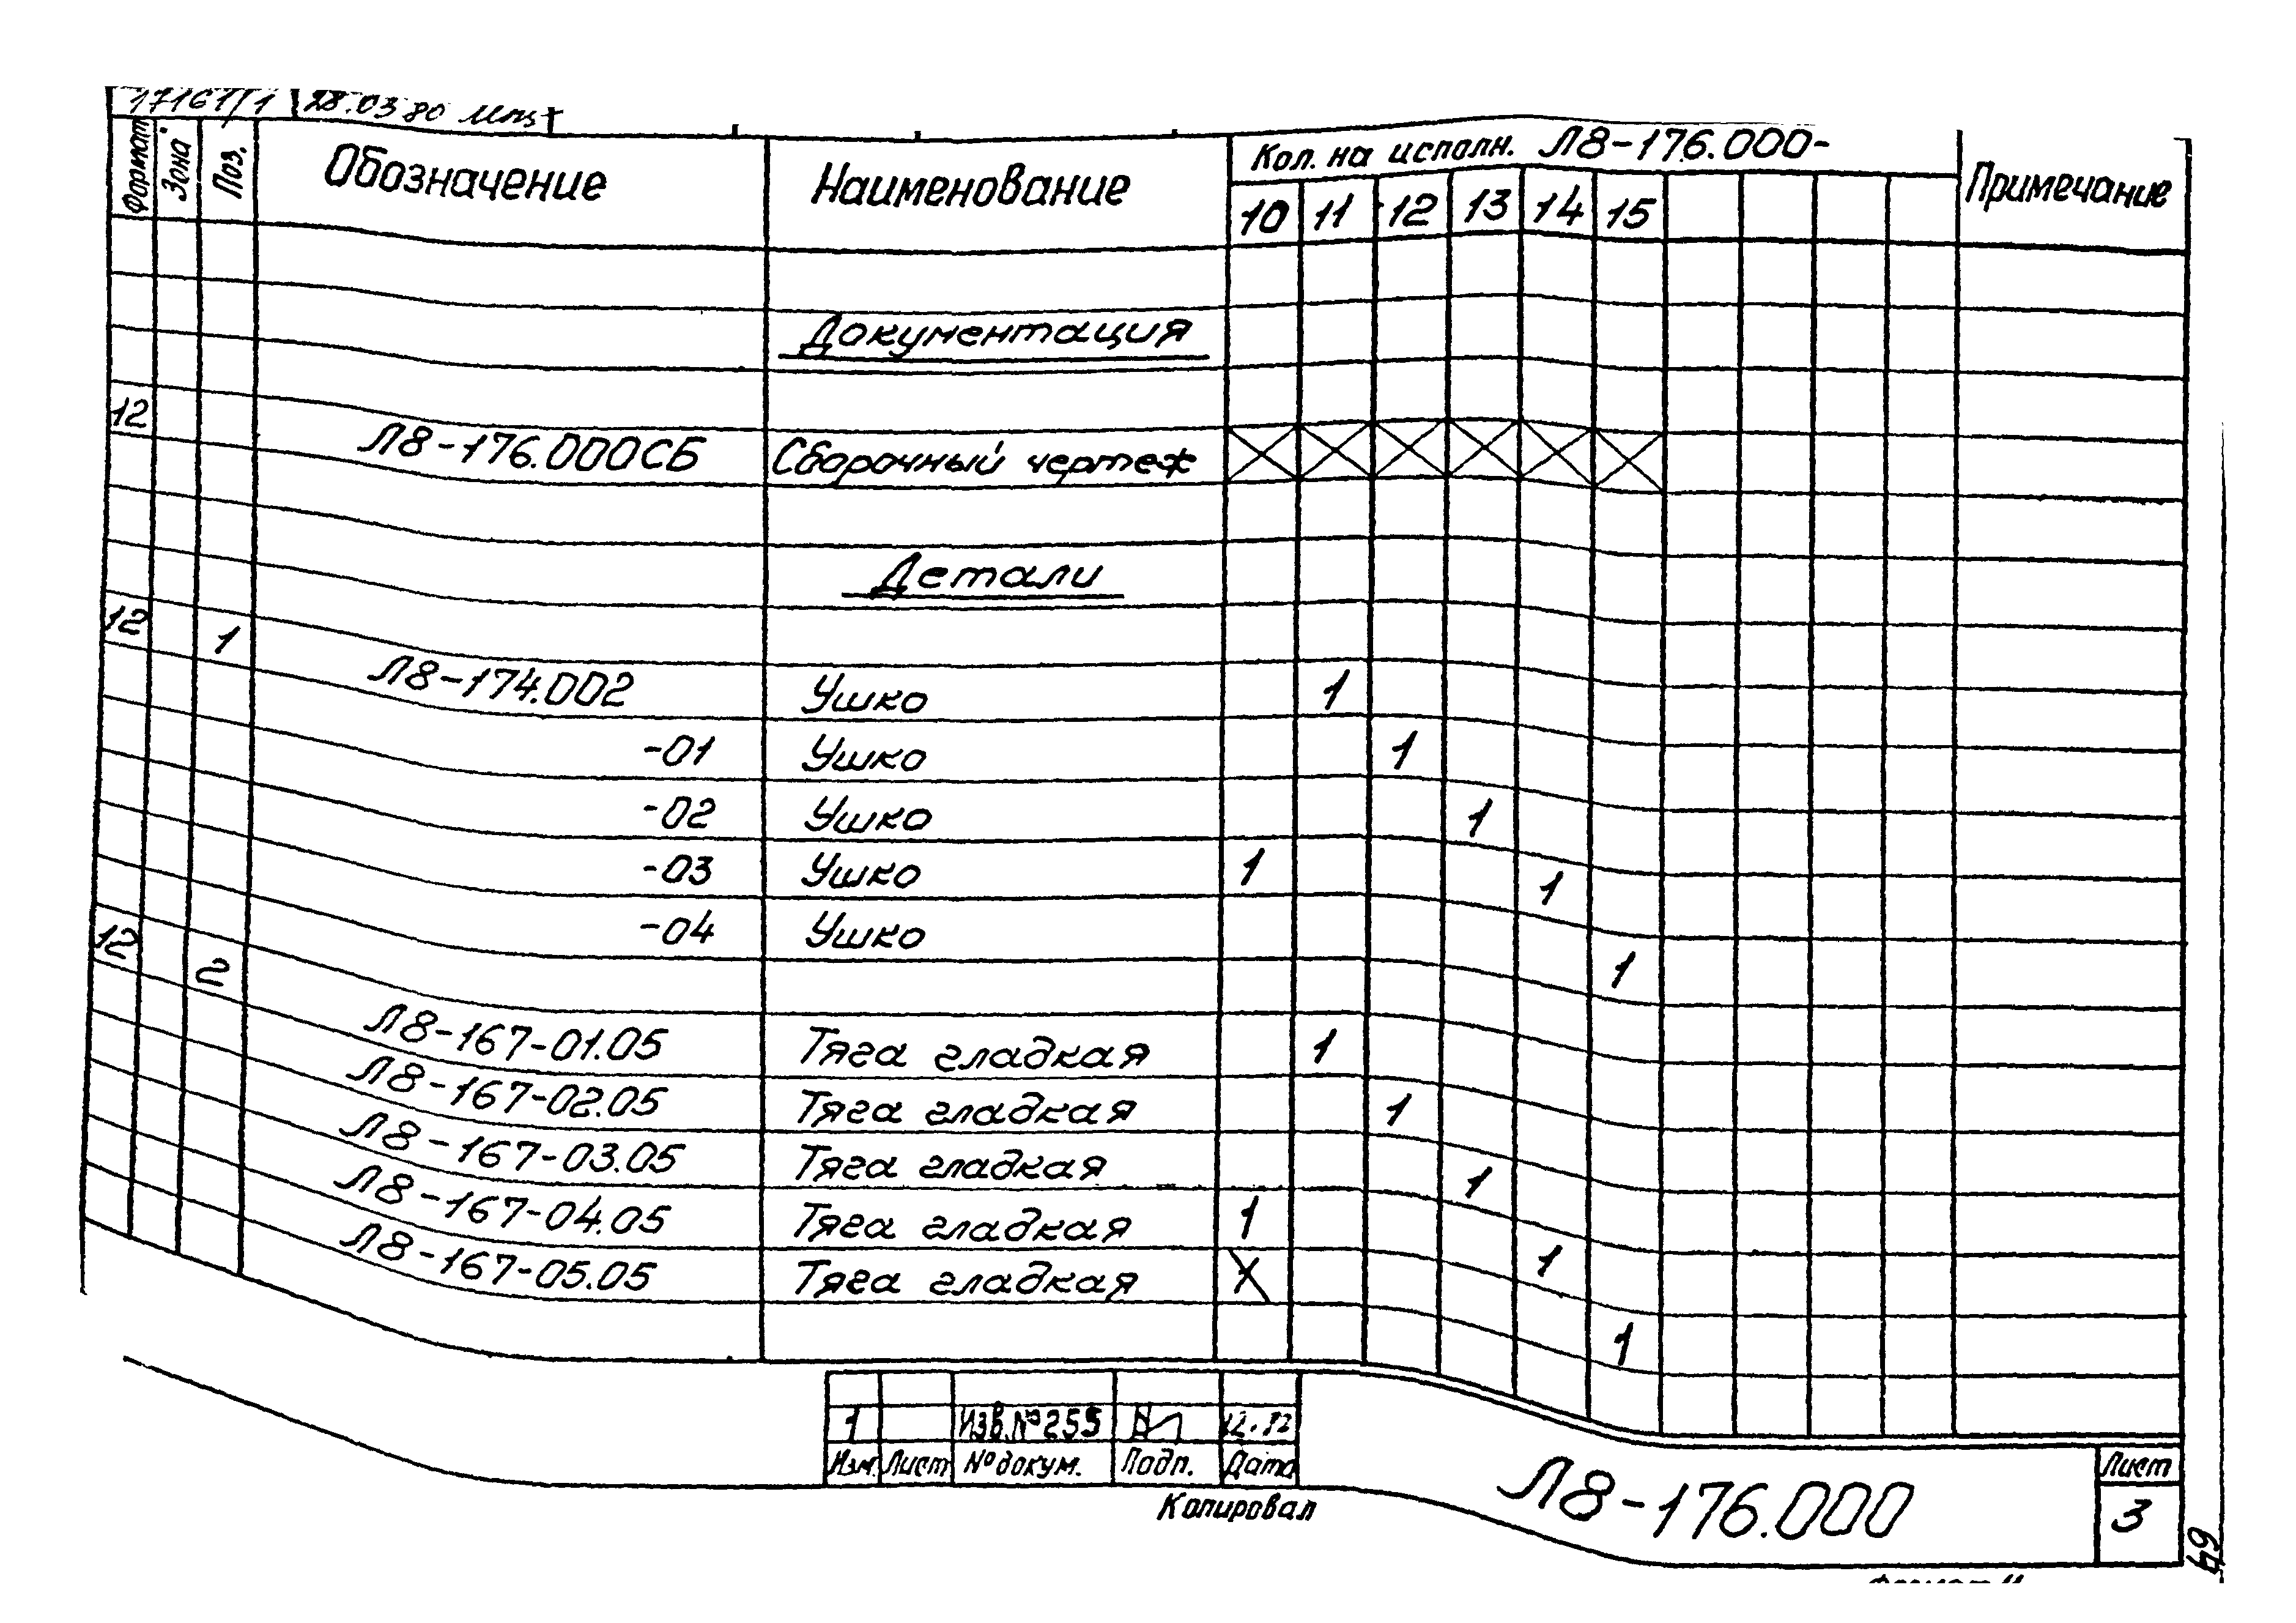 17161/1 28.03.80
Формат Зона Поз. Обозначение Наименование Кол. на исполн. Л8-176.000- Примечание
10 11 12 13 14 15
Документация
12 Л8-176.000СБ Сборочный чертеж
Детали
12 1 Л8-174.002 Ушко 1
-01 Ушко 1
-02 Ушко 1
-03 Ушко 1 1
-04 Ушко 1
12 2 Л8-167-01.05 Тяга гладкая 1
Л8-167-02.05 Тяга гладкая 1
Л8-167-03.05 Тяга гладкая 1
Л8-167-04.05 Тяга гладкая 1 1
Л8-167-05.05 Тяга гладкая 1
1 Изв.№255 12.82
Изм. Лист № докум. Подп. Дата
Л8-176.000
Лист
3
Копировал
69